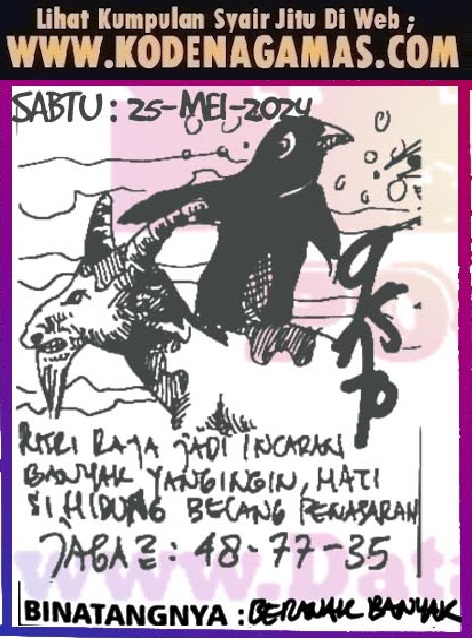 Lihat Kumpulan Syair Jitu Di Web ;
WWW.KODENAGAMAS.COM
SABTU : 25-MEI-2024
PUTRI RAJA JADI INCARAN
BANYAK YANGINGIN, HATI
SI HIDUNG BELANG PENASARAN
JAGA2 : 48-77-35
BINATANGNYA : BERANAK BANYAK